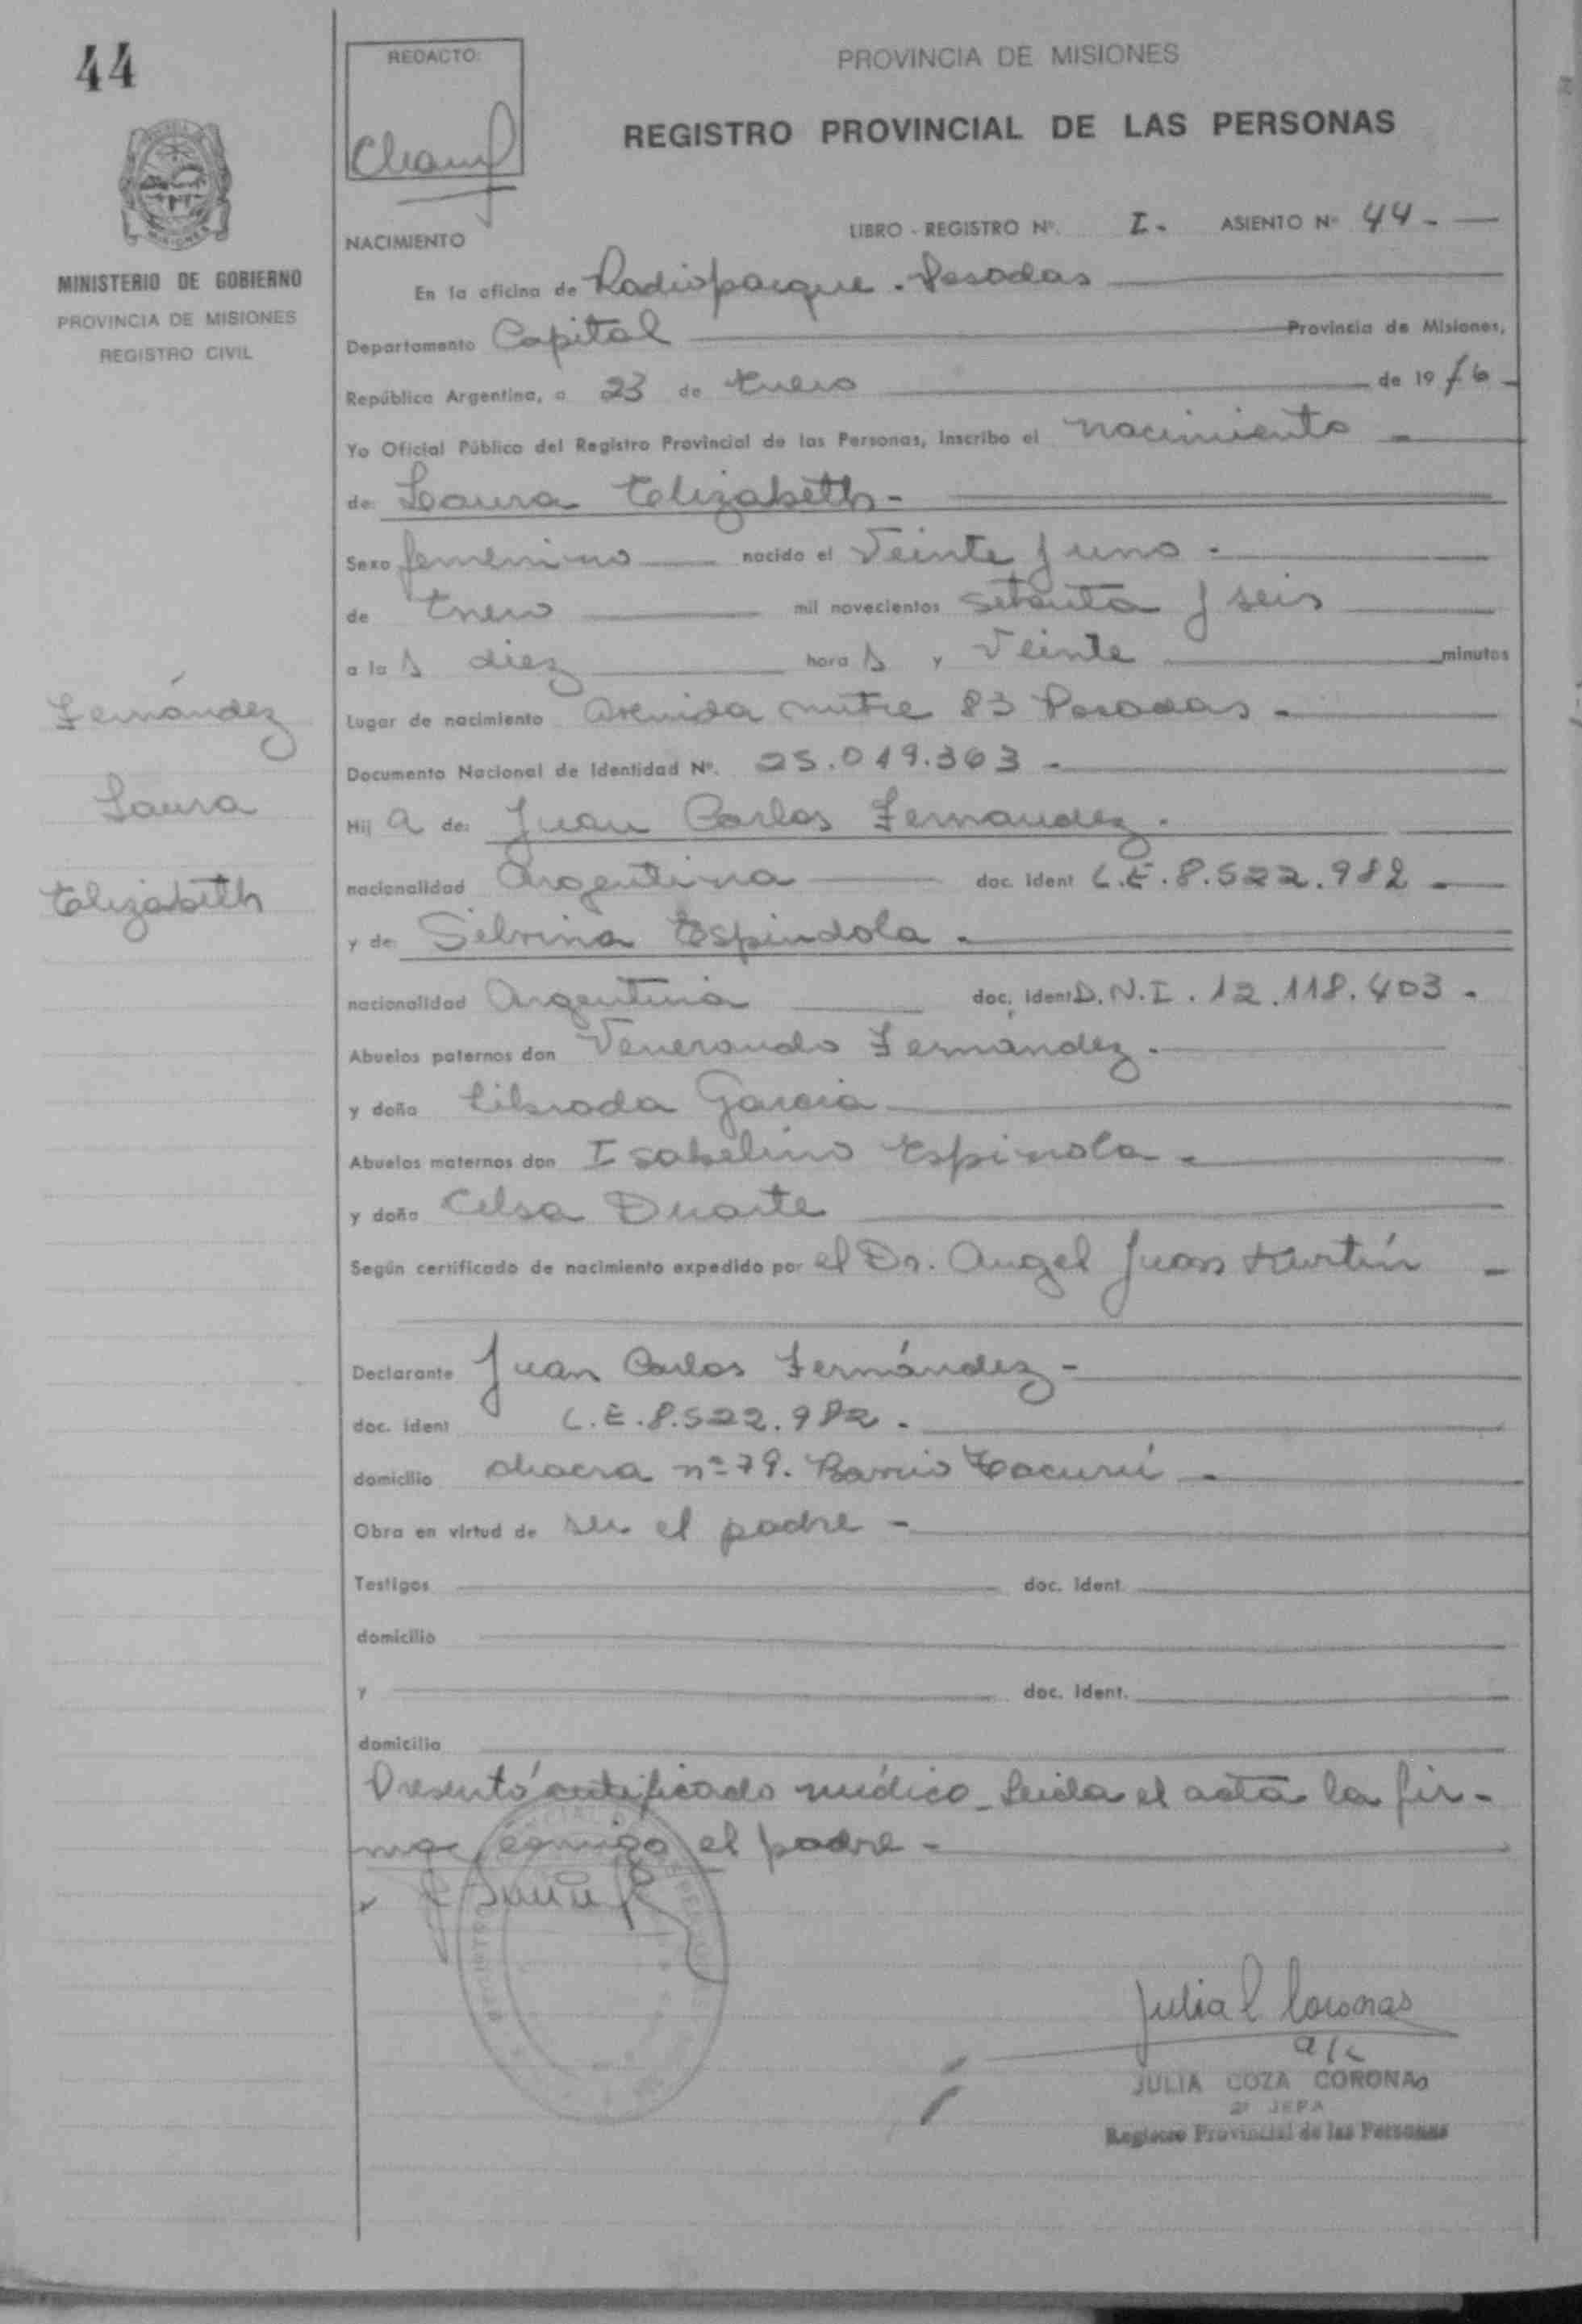 44
REDACTO:
PROVINCIA DE MISIONES
REGISTRO PROVINCIAL DE LAS PERSONAS
MINISTERIO DE GOBIERNO
PROVINCIA DE MISIONES
REGISTRO CIVIL
NACIMIENTO
LIBRO - REGISTRO Nº. I. ASIENTO Nº 44 -
En la oficina de Radioparque - Posadas
Departamento Capital Provincia de Misiones,
República Argentina, a 23 de Enero de 1976 -
Yo Oficial Público del Registro Provincial de las Personas, Inscribo el nacimiento -
de: Laura Elizabeth -
Sexo femenino nacido el Veinte y uno -
de Enero mil novecientos setenta y seis
a la s diez hora s y Veinte minutos
Lugar de nacimiento Avenida mitre 83 Posadas -
Documento Nacional de Identidad Nº. 25.019.363 -
Hij a de: Juan Carlos Fernandez.
nacionalidad Argentina doc. ident L.E. 8.522.982 -
y de: Silvina Espindola -
nacionalidad Argentina doc. ident D.N.I. 12.118.403 -
Abuelos paternos don Venerando Fernández -
y doña Librada Garcia
Abuelos maternos don Isabelino Espinola -
y doña Celsa Duarte
Según certificado de nacimiento expedido por el Dr. Angel Juan Kurtín -
Declarante Juan Carlos Fernández -
doc. ident L.E. 8.522.982 -
domicilio chacra nº 79. Barrio Tacurú -
Obra en virtud de ser el padre -
Testigos doc. ident.
domicilio
y doc. ident.
domicilio
Presentó certificado médico - Leida el acta la fir-
ma conmigo el padre -
Fernández
Laura
Elizabeth
Julia C Coronas
a/c
JULIA COZA CORONAS
2º JEFA
Registro Provincial de las Personas